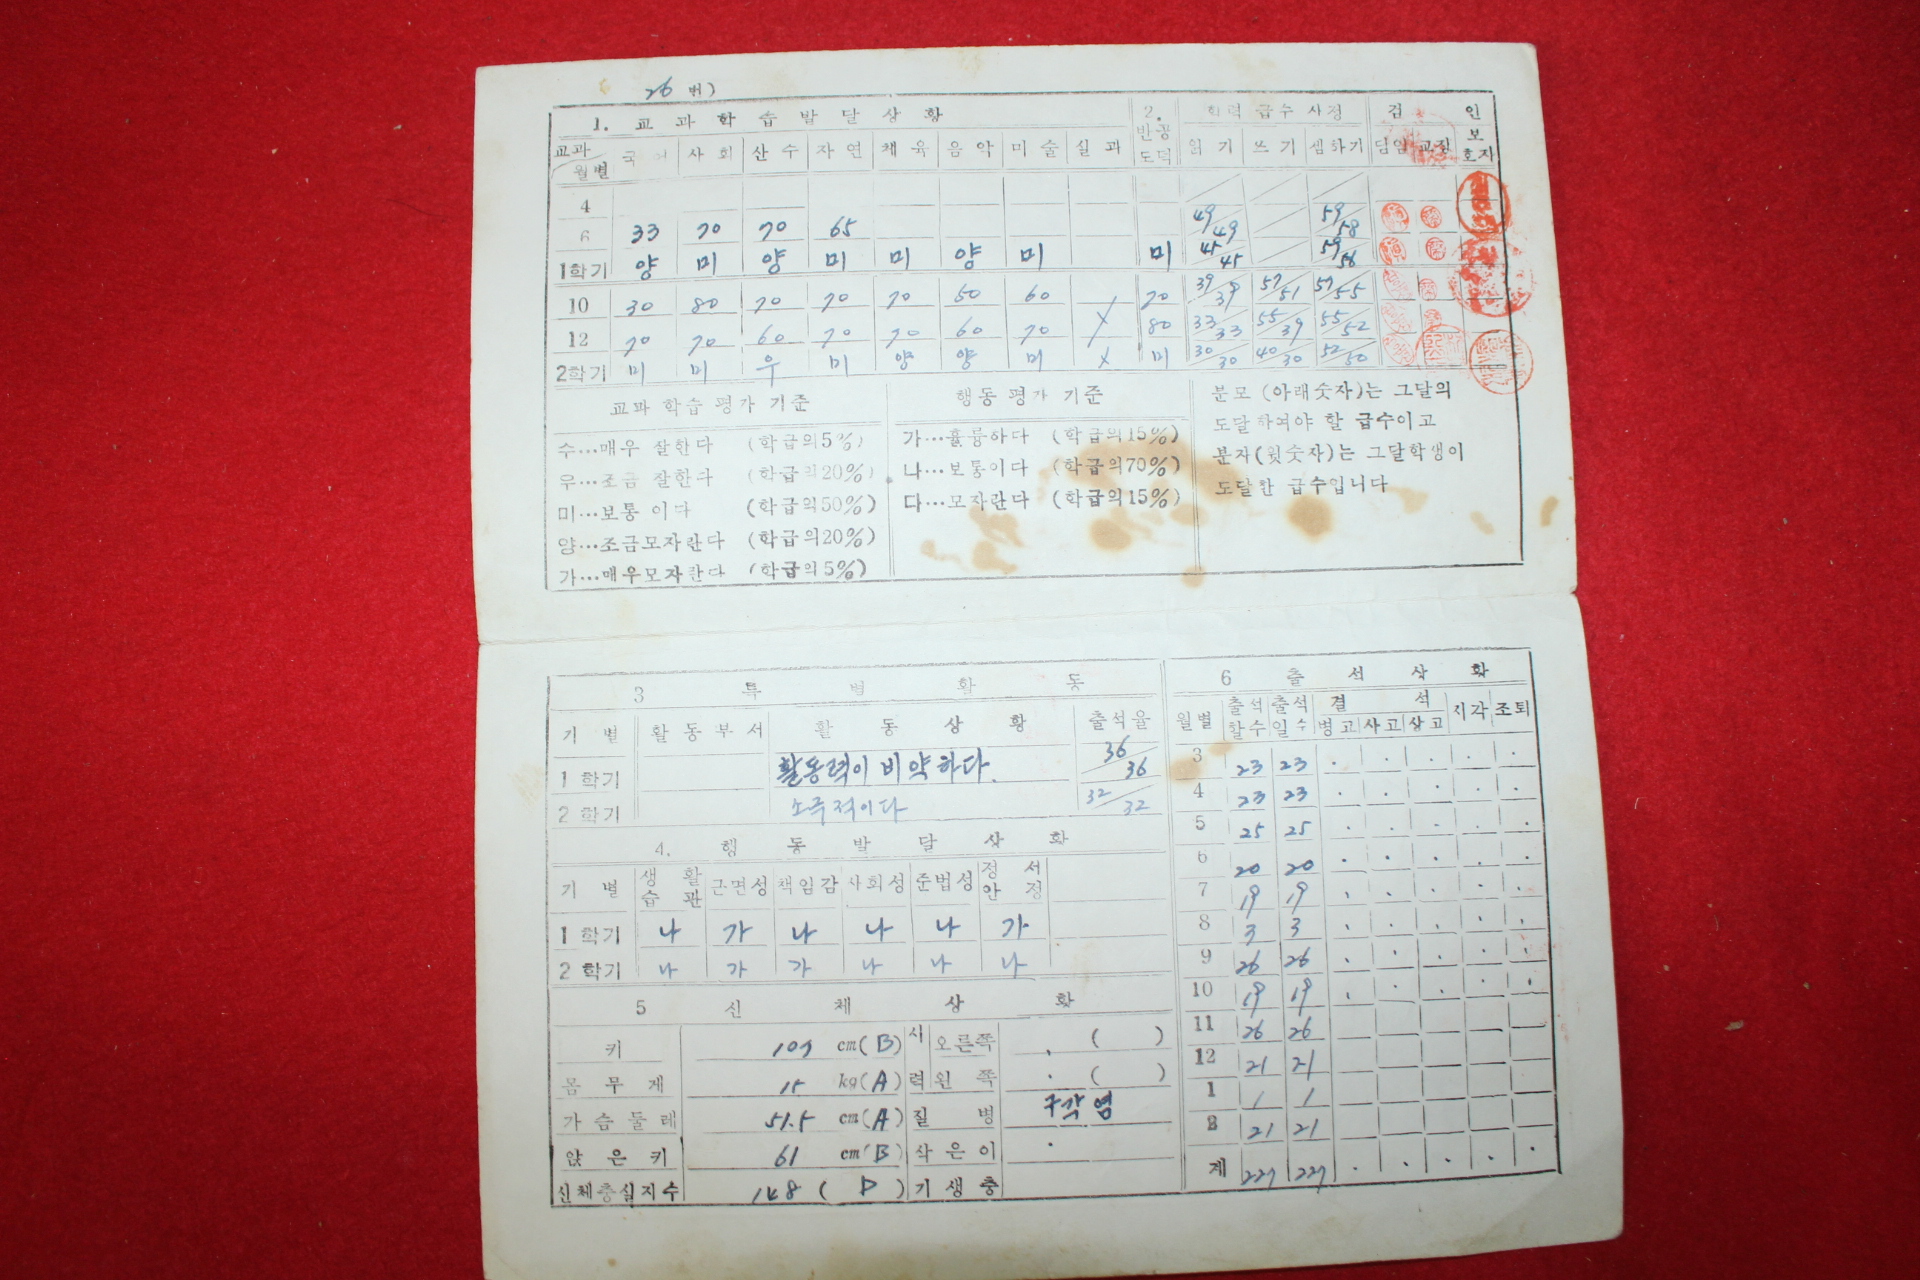 26 번)
1. 교 과 학 습 발 달 상 황 2. 반공 도덕 학력 급수 사정 검 인
교과 월별 국 어 사 회 산 수 자 연 체 육 음 악 미 술 실 과 읽 기 쓰 기 셈하기 담임 교장 보호자
4
6 33 70 70 65 49/49 59/58
1학기 양 미 양 미 미 양 미 미 45/45 59/56
10 30 80 70 70 70 50 60 70 39/39 57/51 57/55
12 70 70 60 70 70 60 70 80 33/33 55/39 55/52
2학기 미 미 우 미 양 양 미 × 미 30/30 40/30 52/50
교과 학습 평가 기준
수…매우 잘한다 (학급의5%)
우…조금 잘한다 (학급의20%)
미…보통 이다 (학급의50%)
양…조금모자란다 (학급의20%)
가…매우모자란다 (학급의5%)
행동 평가 기준
가…훌륭하다 (학급의15%)
나…보통이다 (학급의70%)
다…모자란다 (학급의15%)
분모 (아래숫자)는 그달의
도달하여야 할 급수이고
분자(윗숫자)는 그달학생이
도달한 급수입니다
3 특 별 활 동
기 별 활 동 부 서 활 동 상 황 출석율
1 학기 활동력이 비약하다. 36/36
2 학기 소극적이다 32/32
4. 행 동 발 달 상 황
기 별 생 활 습 관 근면성 책임감 사회성 준법성 정 서 안 정
1 학기 나 가 나 나 나 가
2 학기 나 가 가 나 나 나
5 신 체 상 황
키 107 cm(B) 시력 오른쪽 . ( )
몸 무 게 15 kg(A) 왼 쪽 . ( )
가 슴 둘 레 51.5 cm(A) 질 병 구각염
앉 은 키 61 cm(B) 삭은이 .
신체충실지수 148 ( D ) 기 생 충
6 출 석 상 황
월별 출석할수 출석일수 결 석 병고 사고 상고 지각 조퇴
3 23 23 . . . . .
4 23 23 . . . . .
5 25 25 . . . . .
6 20 20 . . . . .
7 19 19 . . . . .
8 3 3 . . . . .
9 26 26 . . . . .
10 19 19 . . . . .
11 26 26
12 21 21
1 1 1
2 21 21
계 227 227 . . . . .